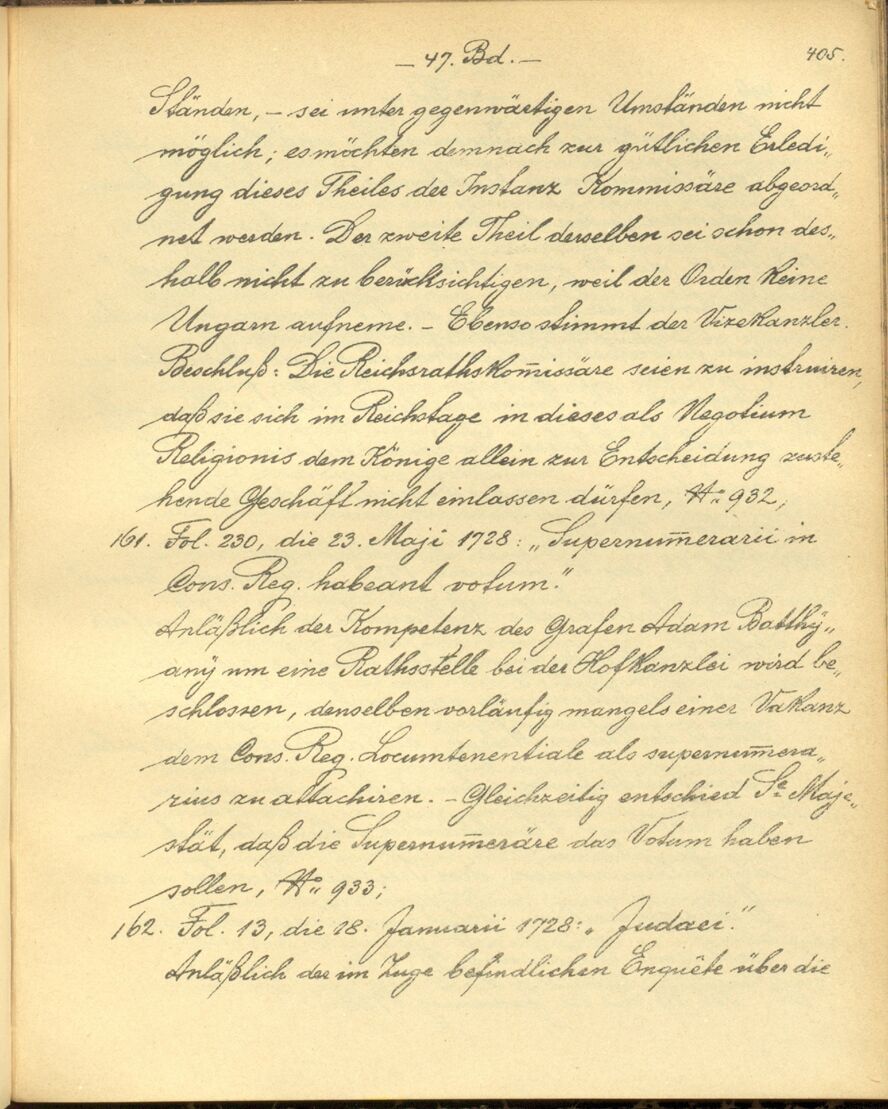 — 47. Bd. —
405.
Ständen, — sei unter gegenwärtigen Umständen nicht
möglich; es möchten demnach zur gütlichen Erledi„
gung dieses Theiles der Instanz Kommissäre abgeord„
net werden. Der zweite Theil derselben sei schon des„
halb nicht zu berücksichtigen, weil der Orden keine
Ungarn aufneme. — Ebenso stimmt der Vizekanzler.
Beschluß: Die Reichsrathskom̅issäre seien zu instruiren,
daß sie sich im Reichstage in dieses als Negotium
Religionis dem Könige allein zur Entscheidung zuste„
hende Geschäft nicht einlassen dürfen, No 932;
161. Fol. 230, die 23. Maji 1728: „Supernum̅erarii in
Cons. Reg. habeant votum."
Anläßlich der Kompetenz des Grafen Adam Batthÿ„
anÿ um eine Rathsstelle bei der Hofkanzlei wird be„
schlossen, denselben vorläufig mangels einer Vakanz
dem Cons. Reg. Locumtenentiale als supernum̅era„
rius zu attachiren. — Gleichzeitig entschied Se Maje„
stät, daß die Supernum̅eräre das Votum haben
sollen, No 933;
162. Fol. 13, die 28. Januarii 1728: „Judaei."
Anläßlich der im Zuge befindlichen Enquête über die